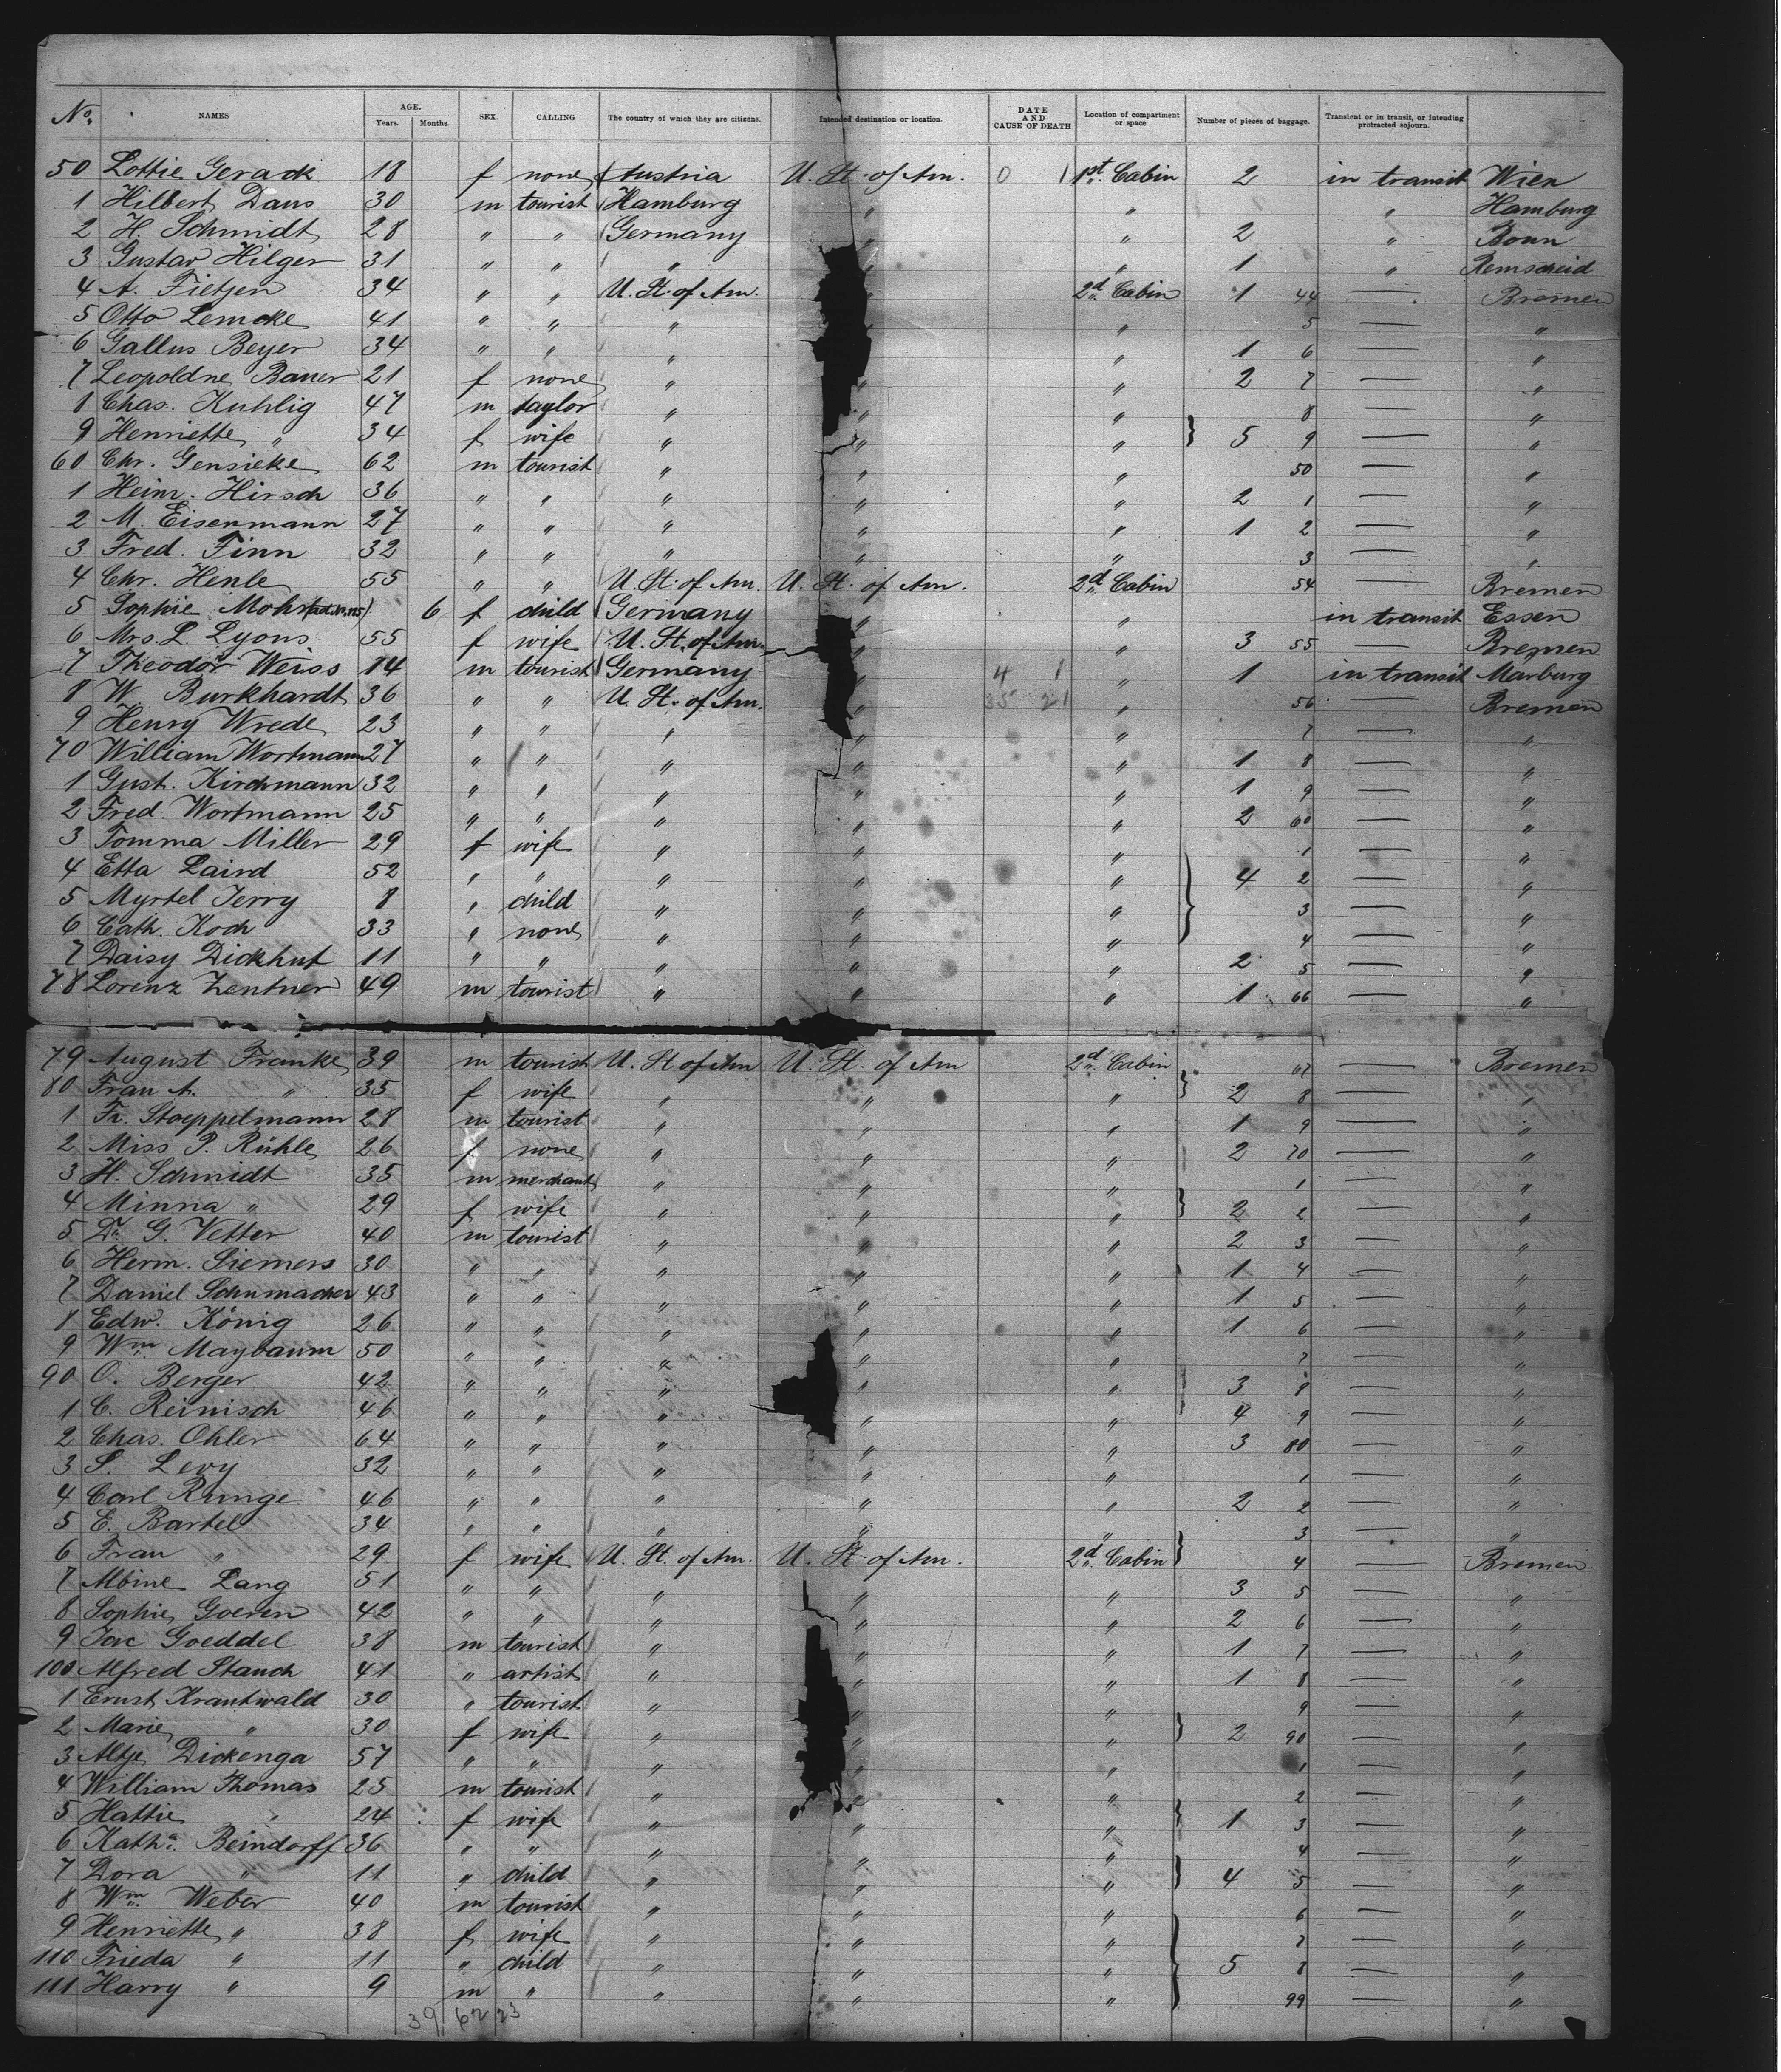 No. NAMES AGE. Years. Months. SEX. CALLING The country of which they are citizens. Intended destination or location. DATE AND CAUSE OF DEATH Location of compartment or space Number of pieces of baggage. Transient or in transit, or intending protracted sojourn.
50 Lottie Gerack 18 f none Austria U. St. of Am. 0 1 1st Cabin 2 in transit Wien
1 Hilbert Daus 30 m tourist Hamburg " " " Hamburg
2 H. Schmidt 28 " " Germany " " 2 " Bonn
3 Gustav Hilger 31 " " " " 1 " Remscheid
4 A. Tietjen 34 " " U. St. of Am. " 2d Cabin 1 44 — Bremen
5 Otto Lemcke 41 " " " " 5 — "
6 Gallus Beyer 34 " " " " 1 6 — "
7 Leopoldne Bauer 21 f none " " " 2 7 — "
8 Chas. Kuhlig 47 m taylor " " " 8 — "
9 Henriette " 34 f wife " " " } 5 9 — "
60 Chr. Gensicke 62 m tourist " " " 50 — "
1 Heinr. Hirsch 36 " " " " " 2 1 — "
2 M. Eisenmann 27 " " " " " 1 2 — "
3 Fred. Finn 32 " " " " " 3 — "
4 Chr. Henle 55 " " U. St. of Am. U. St. of Am. 2d Cabin 54 — Bremen
5 Sophie Mohr 6 f child Germany " " in transit Essen
6 Mrs. L. Lyons 55 f wife U. St. of Am. " " 3 55 — Bremen
7 Theodor Weiss 14 m tourist Germany " 4 1 " 1 in transit Marburg
8 W. Burkhardt 36 " " U. St. of Am. " 35 21 " 56 — Bremen
9 Henry Wrede 23 " " " " " 7 — "
70 William Wortmann 27 " " " " " 1 8 — "
1 Gust. Kirchmann 32 " " " " " 1 9 — "
2 Fred. Wortmann 25 " " " " " 2 60 — "
3 Tomma Miller 29 f wife " " " 1 — "
4 Etta Laird 52 " " " " " } 4 2 — "
5 Myrtel Terry 8 " child " " " 3 — "
6 Cath. Koch 33 " none " " " 4 — "
7 Daisy Dickhut 11 " " " " " 2 5 — "
78 Lorenz Zentner 49 m tourist " " " 1 66 — "
79 August Franke 39 m tourist U. St. of Am U. St. of Am 2d Cabin 67 — Bremen
80 Frau A. " 35 f wife " " " } 2 8 — "
1 Fr. Stoeppelmann 28 m tourist " " " 1 9 — "
2 Miss P. Rühle 26 f none " " " 2 70 — "
3 H. Schmidt 35 m merchant " " " 1 — "
4 Minna " 29 f wife " " " } 2 2 — "
5 Dr. G. Vetter 40 m tourist " " " 2 3 — "
6 Herm. Siemers 30 " " " " " 1 4 — "
7 Daniel Schumacher 43 " " " " " 1 5 — "
8 Edw. König 26 " " " " " 1 6 — "
9 Wm. Maybaum 50 " " " " " 7 — "
90 O. Berger 42 " " " " " 3 8 — "
1 C. Reinisch 46 " " " " " 4 9 — "
2 Chas. Ohler 64 " " " " " 3 80 — "
3 S. Levy 32 " " " " " 1 — "
4 Carl Runge 46 " " " " " 2 2 — "
5 E. Bartel 34 " " " " " 3 — "
6 Frau " 29 f wife U. St. of Am. U. St. of Am. 2d Cabin } 4 — Bremen
7 Albine Lang 51 " " " " " 3 5 — "
8 Sophie Goeren 42 " " " " " 2 6 — "
9 Jac Goeddel 38 m tourist " " " 1 7 — "
100 Alfred Stauch 41 " artist " " " 1 8 — "
1 Ernst Krautwald 30 " tourist " " " 9 — "
2 Marie " 30 f wife " " " } 2 90 — "
3 Altje Dickenga 57 " " " " " 1 — "
4 William Thomas 25 m tourist " " " 2 — "
5 Hattie " 24 f wife " " " } 1 3 — "
6 Katha. Beindorff 36 " " " " " 4 — "
7 Dora " 11 " child " " " } 4 5 — "
8 Wm. Weber 40 m tourist " " " 6 — "
9 Henriette " 38 f wife " " " 7 — "
110 Frieda " 11 " child " " " } 5 8 — "
111 Harry " 9 m " " " " 99 — "
39 62 23